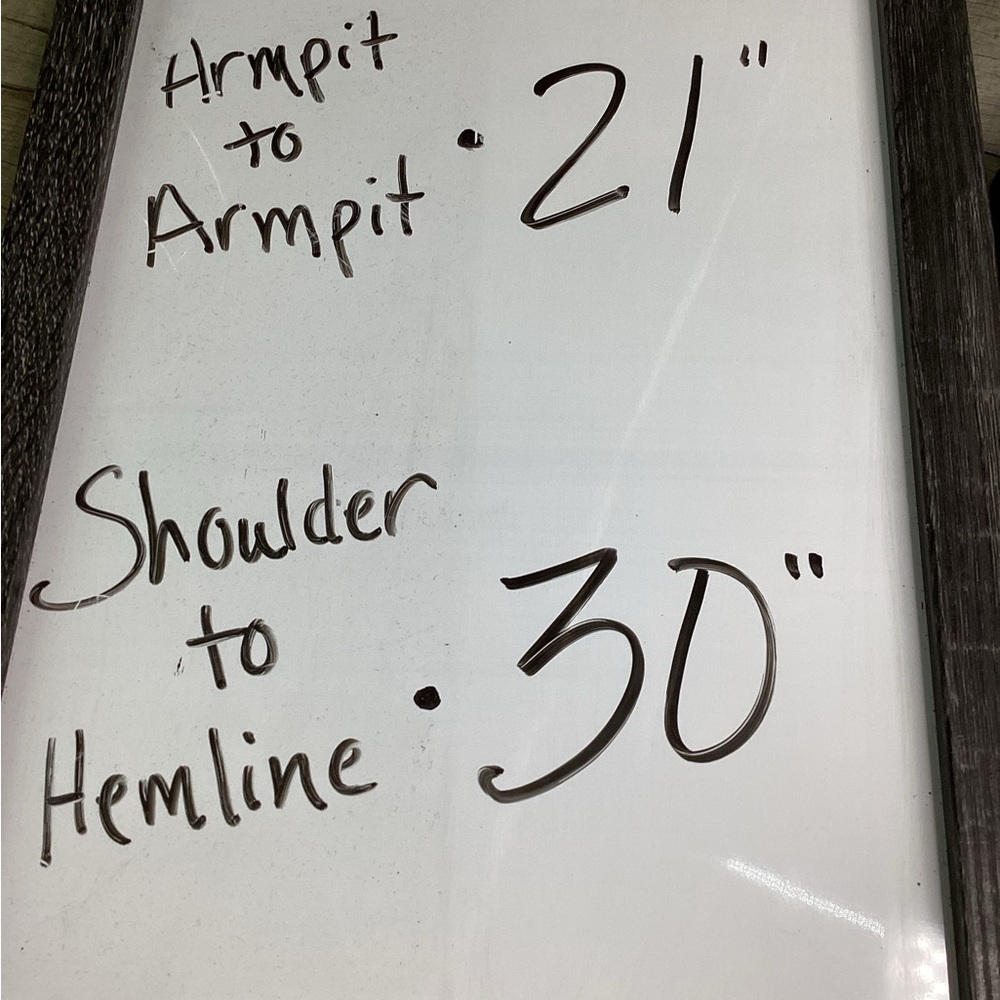 Armpit
to
Armpit • 21"
Shoulder
to
Hemline • 30"